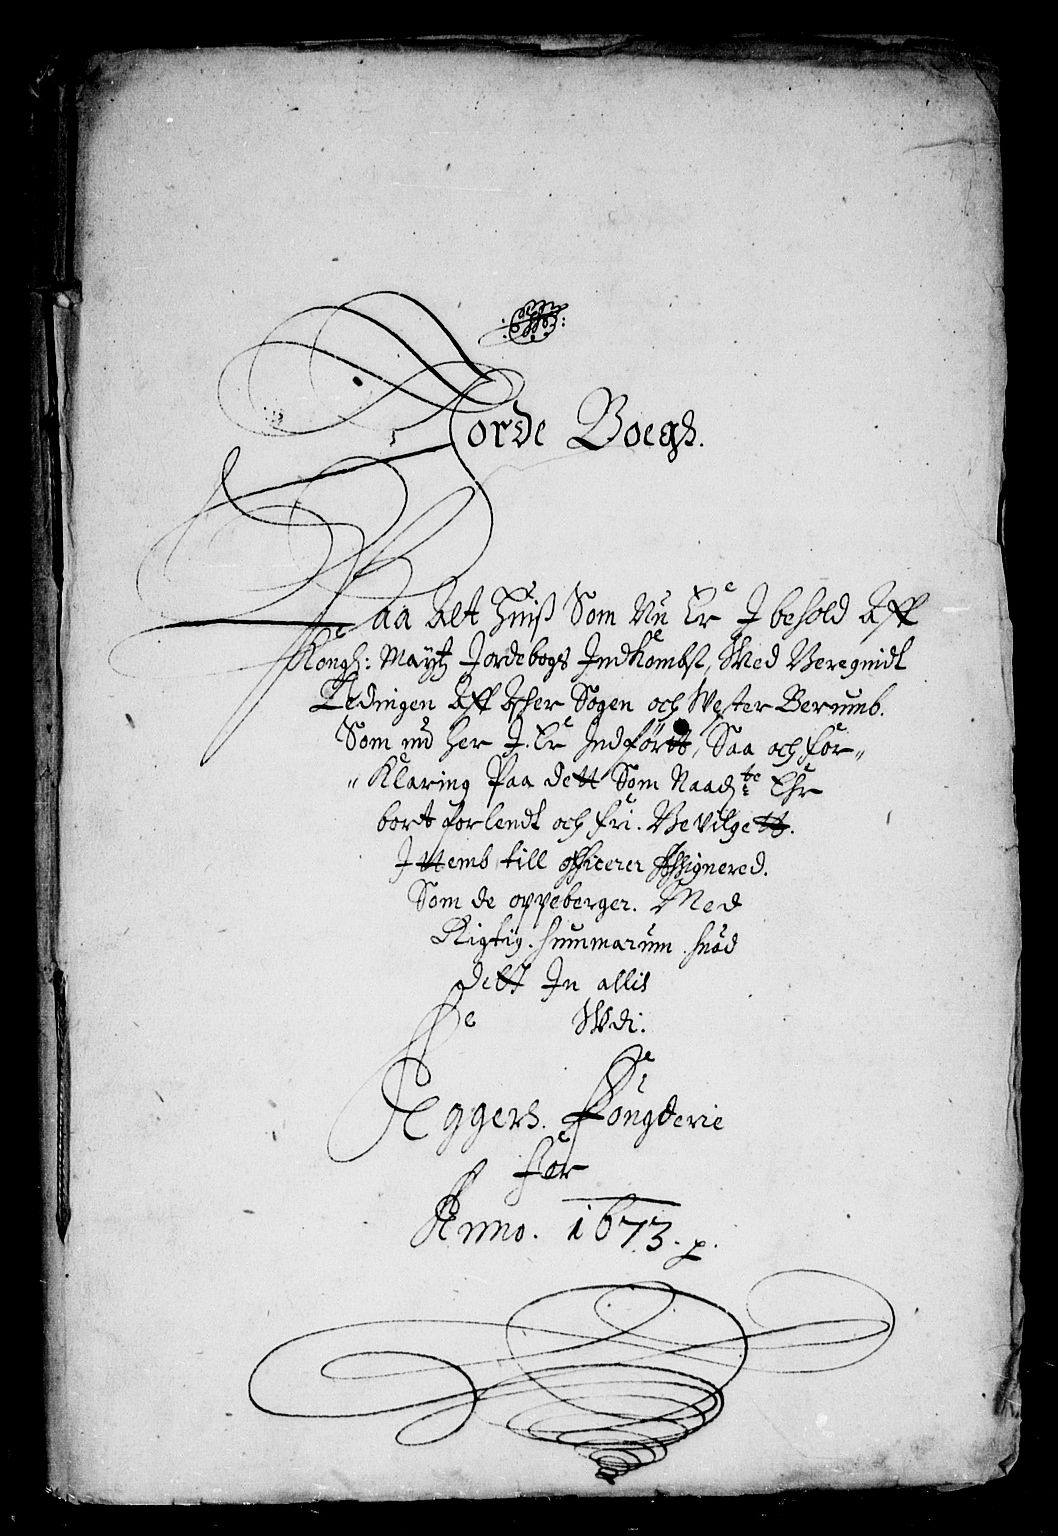 Jorde Boegh.
Paa Alt Huiß Som Nu Er J behold Aff
Kongh: Maytz Jordebogs Indkombst, Med Beregnidt
Ledingen Aff Acher Sogen och Wester Berumb.
Som nu her J. Er Indførtt, Saa och for„
„Klaring Paa dett Som Naadste Ehr
bort forlendt och fri. Bevilgett.
Jttemb till officerer Assignered.
Som de oppeberger. Med
Rigtig. Summarum. huad
dett In allis
Wdi.
Eggers. Fougderie
for
Anno. 1673. p.